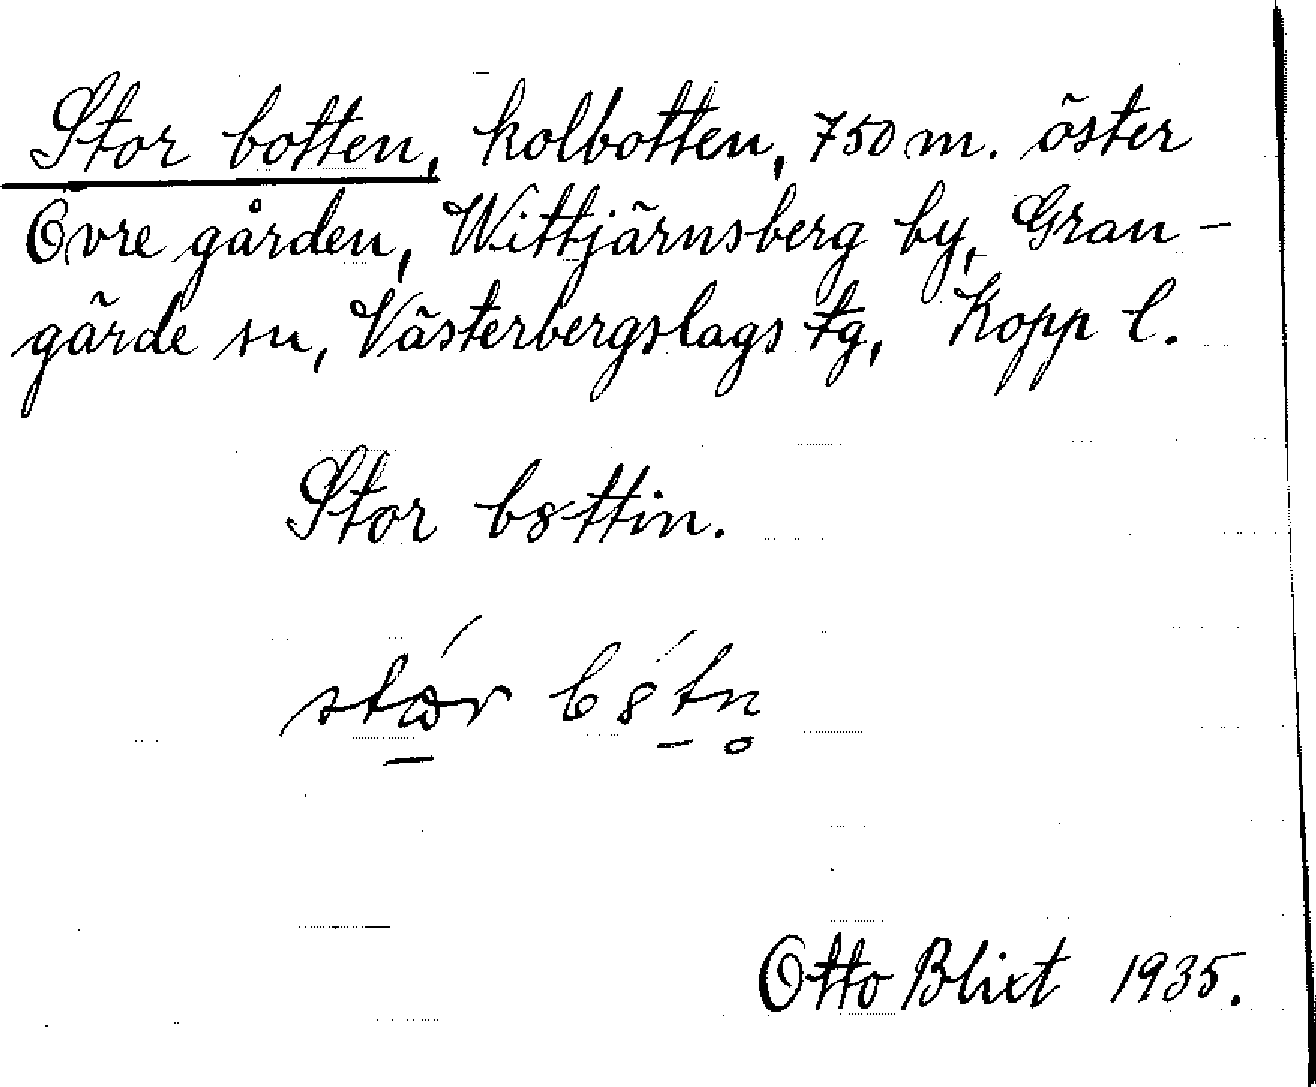 Stor botten, kolbotten, 750 m. öster
Övre gården, Wittjärnsberg by, Gran-
gärde sn, Västerbergslags tg, Kopp l.
Stor b8ttin.
Otto Blixt 1935.